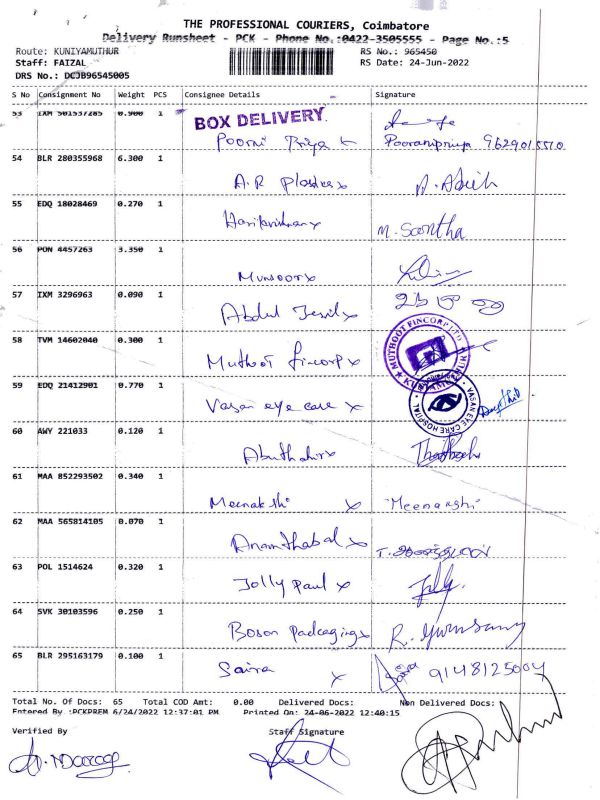 THE PROFESSIONAL COURIERS, Coimbatore
Delivery Runsheet - PCK - Phone No.:0422-3505555 - Page No.:5
Route: KUNIYAMUTHUR RS No.: 965450
Staff: FAIZAL RS Date: 24-Jun-2022
DRS No.: DCJB96545005
S No Consignment No Weight PCS Consignee Details Signature
53 IXM 501537285 0.900 1 BOX DELIVERY
Poorni Priya x Pooranipriya 9629015510
54 BLR 280355968 6.300 1
A.R Plastics x
55 EDQ 18028469 0.270 1
Harikrishnan x M. Santha
56 PON 4457263 3.350 1
Munsoor x
57 IXM 3296963 0.090 1
Abdul x
58 TVM 14602040 0.300 1 MUTHOOT FINCORP LTD
Muthoot fincorp x
59 EDQ 21412901 0.770 1 VASAN EYE CARE HOSPITAL
Vasan eye care x
60 AWY 221033 0.120 1
Abuthahir x
61 MAA 852293502 0.340 1
Meenakshi x "Meenakshi"
62 MAA 565814105 0.070 1
Ananthabal x
63 POL 1514624 0.320 1
Jolly Paul x
64 SVK 30103596 0.250 1
Boson Packaging x
65 BLR 295163179 0.100 1
Saira x Saira 9148125004
Total No. Of Docs: 65 Total COD Amt: 0.00 Delivered Docs: Non Delivered Docs:
Entered By :PCKPREM 6/24/2022 12:37:01 PM Printed On: 24-06-2022 12:40:15
Verified By Staff Signature